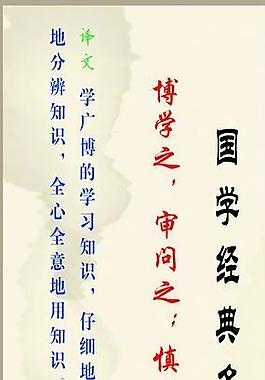 国学经典名
博学之，审问之；慎
译文 学广博的学习知识，仔细地
地分辨知识，全心全意地用知识。